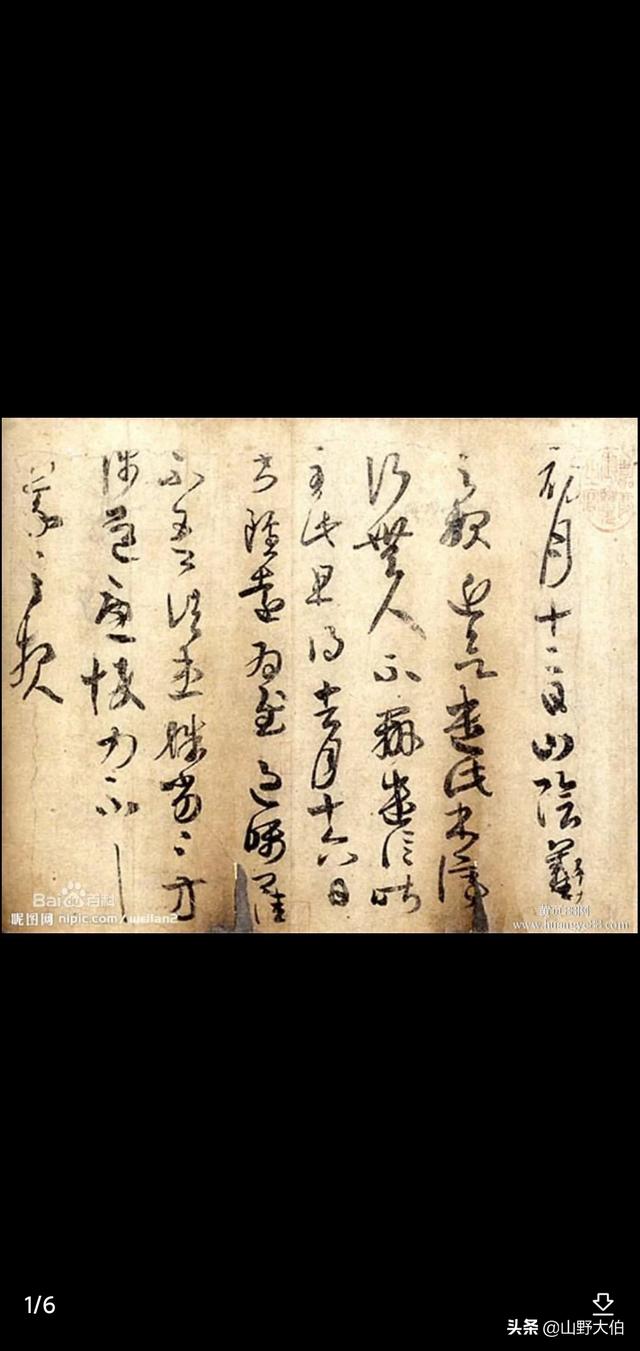 初月十二日山陰羲
之報近欲遣此書停
行無人不辦遣信昨
至此且得去月十六日
書雖遠為慰過囑卿佳
不吾諸患殊劣殊劣方
涉道憂悴力不具
羲之報
Baidu百科
昵图网 nipic.com/weilan2
黄页88网
www.huangye88.com
1/6
头条 @山野大伯